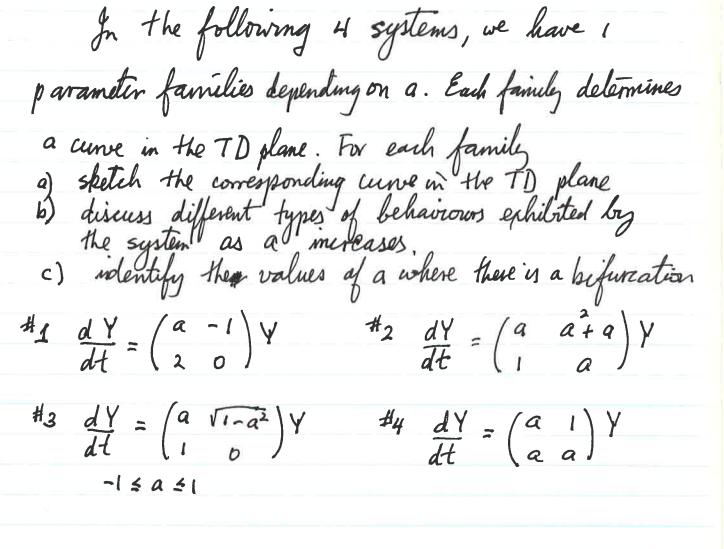 In the following 4 systems, we have 1
parameter families depending on a. Each family determines
a curve in the TD plane. For each family
a) sketch the corresponding curve in the TD plane
b) discuss different types of behaviours exhibited by
the system as a increases.
c) identify the values of a where there is a bifurcation
#1 dY/dt = (a -1; 2 0) Y    #2 dY/dt = (a a²+a; 1 a) Y
#3 dY/dt = (a √1-a²; 1 0) Y    #4 dY/dt = (a 1; a a) Y
-1 ≤ a ≤ 1